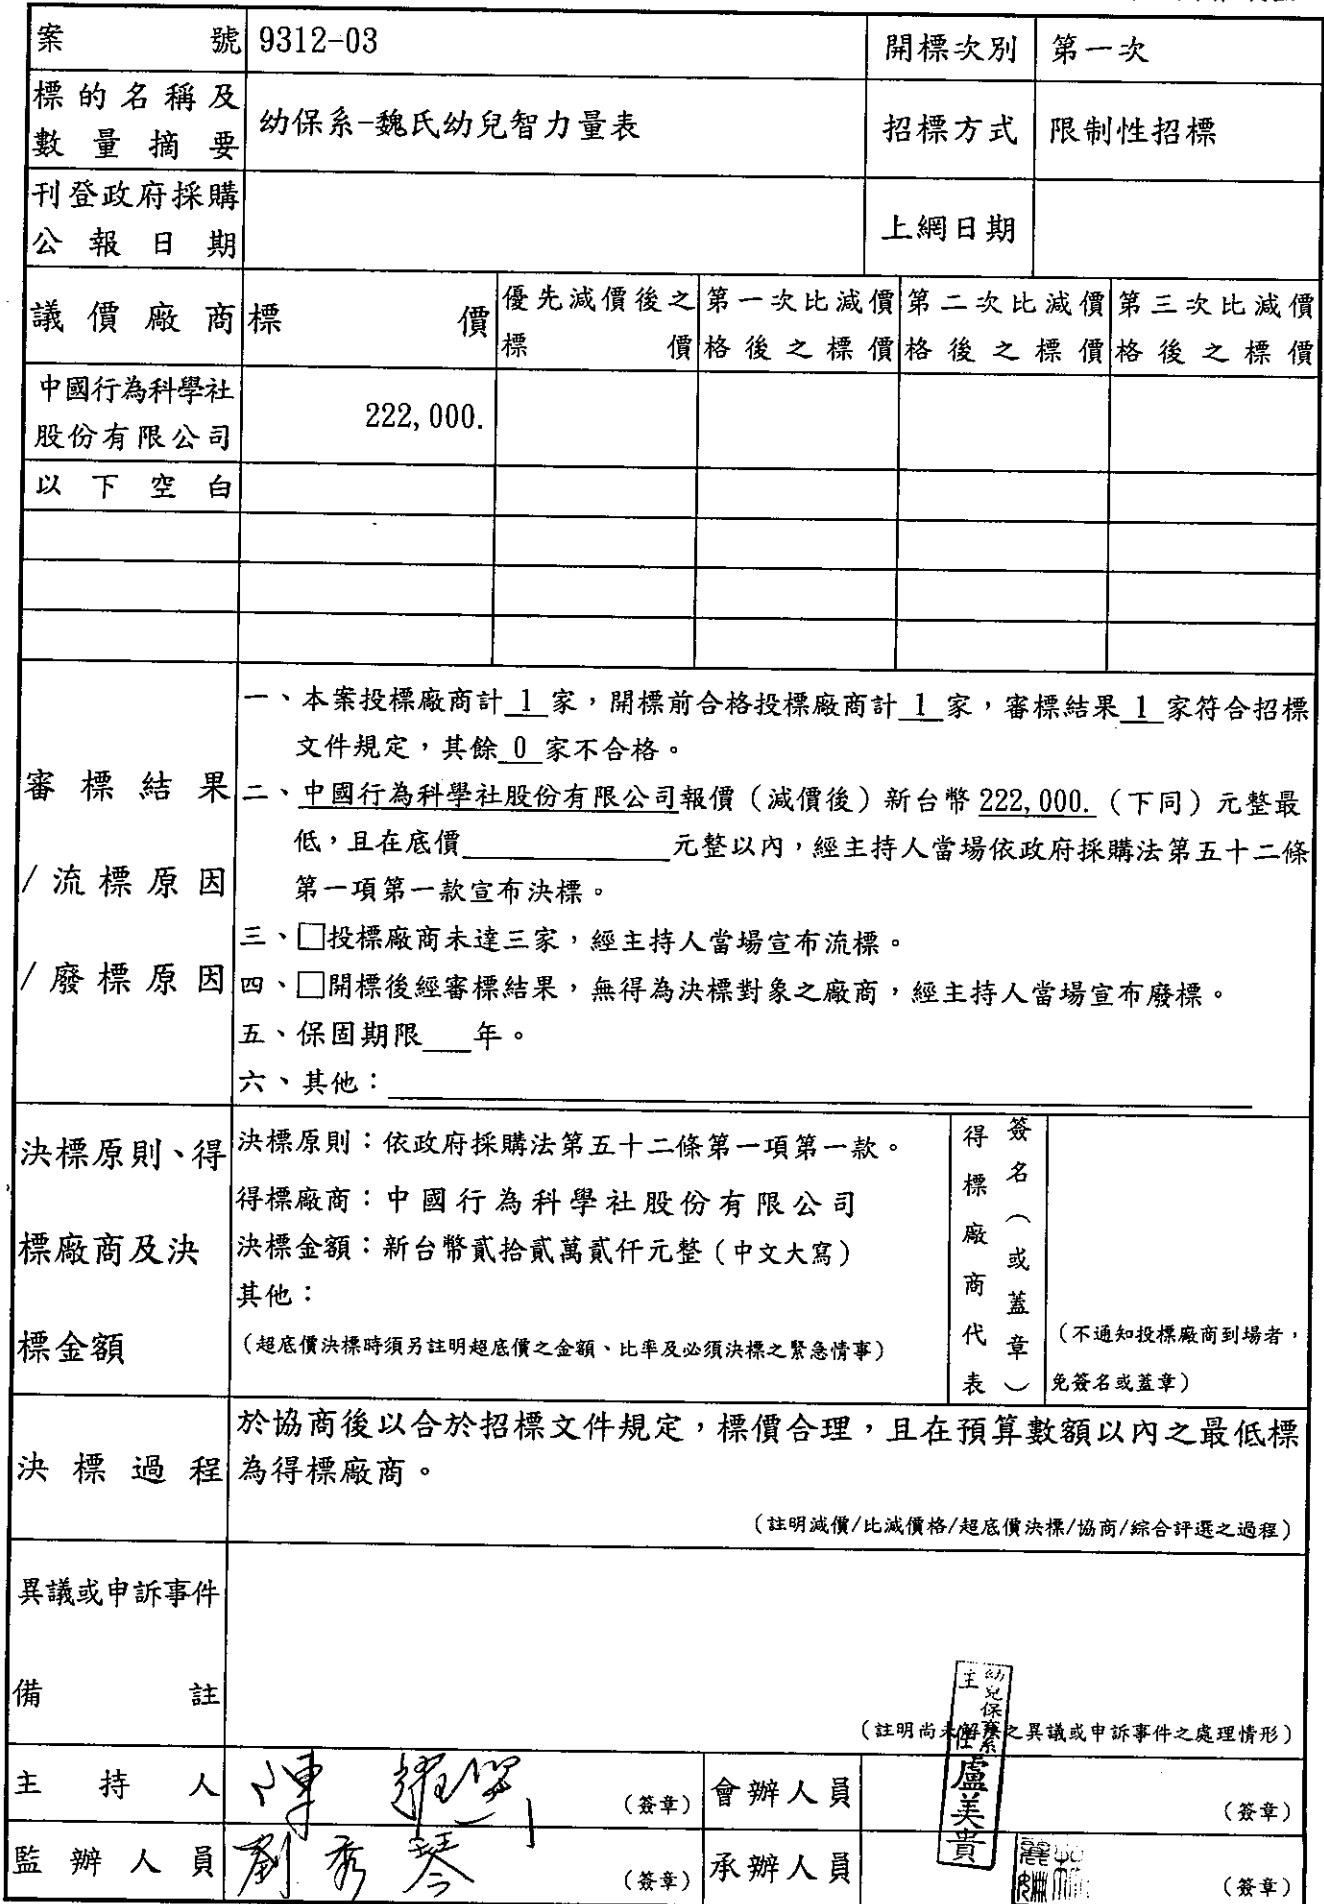 案號 9312-03 開標次別 第一次
標的名稱及
數量摘要
幼保系-魏氏幼兒智力量表 招標方式 限制性招標
刊登政府採購
公報日期
上網日期
議價廠商 標價
優先減價後之
標價
第一次比減價
格後之標價
第二次比減價
格後之標價
第三次比減價
格後之標價
中國行為科學社
股份有限公司
222,000.
以下空白
審標結果
/流標原因
/廢標原因
一、本案投標廠商計 1 家，開標前合格投標廠商計 1 家，審標結果 1 家符合招標
文件規定，其餘 0 家不合格。
二、中國行為科學社股份有限公司報價（減價後）新台幣 222,000.（下同）元整最
低，且在底價＿＿＿＿＿＿元整以內，經主持人當場依政府採購法第五十二條
第一項第一款宣布決標。
三、□投標廠商未達三家，經主持人當場宣布流標。
四、□開標後經審標結果，無得為決標對象之廠商，經主持人當場宣布廢標。
五、保固期限＿＿年。
六、其他：
決標原則、得
標廠商及決
標金額
決標原則：依政府採購法第五十二條第一項第一款。
得標廠商：中國行為科學社股份有限公司
決標金額：新台幣貳拾貳萬貳仟元整（中文大寫）
其他：
（超底價決標時須另註明超底價之金額、比率及必須決標之緊急情事）
得標廠商代表
簽名（或蓋章）
（不通知投標廠商到場者，
免簽名或蓋章）
決標過程
於協商後以合於招標文件規定，標價合理，且在預算數額以內之最低標
為得標廠商。
（註明減價/比減價格/超底價決標/協商/綜合評選之過程）
異議或申訴事件
備註
（註明尚未解決之異議或申訴事件之處理情形）
幼兒保育系
主任 盧美貴
主持人 陳 （簽章） 會辦人員 （簽章）
監辦人員 劉秀琴 （簽章） 承辦人員 （簽章）